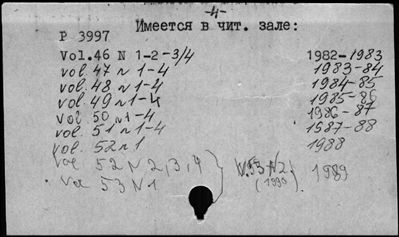 -4-
Имеется в чит. зале:
P 3997
Vol.46 N 1-2-3/4 1982-1983
vol. 47 N 1-4 1983-84
vol. 48 N 1-4 1984-85
vol. 49 N 1-4 1985-86
vol 50 N 1-4 1986-87
vol. 51 N 1-4 1987-88
vol. 52 N 1 1988
vol 52 N 2,3,4 V.53 N2 1989
vol 53 N 1 (1990)